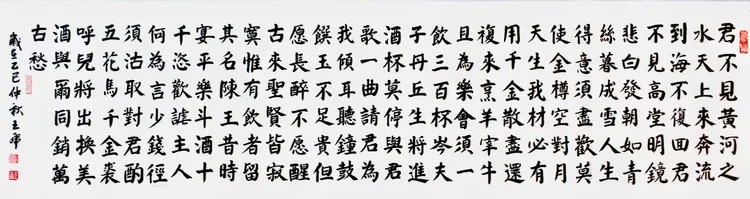 君不見黃河之
水天上來奔流
到海不復回君
不見高堂明鏡
悲白發朝如青
絲暮成雪人生
得意須盡歡莫
使金樽空對月
天生我材必有
用千金散盡還
複來烹羊宰牛
且為樂會須一
飲三百杯岑夫
子丹丘生將進
酒杯莫停與君
歌一曲請君為
我傾耳聽鐘鼓
饌玉不足貴但
愿長醉不愿醒
古來聖賢皆寂
寞惟有飲者留
其名陳王昔時
宴平樂斗酒十
千恣歡謔主人
何為言少錢徑
須沽取對君酌
五花馬千金裘
呼兒將出換美
酒與爾同銷萬
古愁
歲在乙巳仲秋